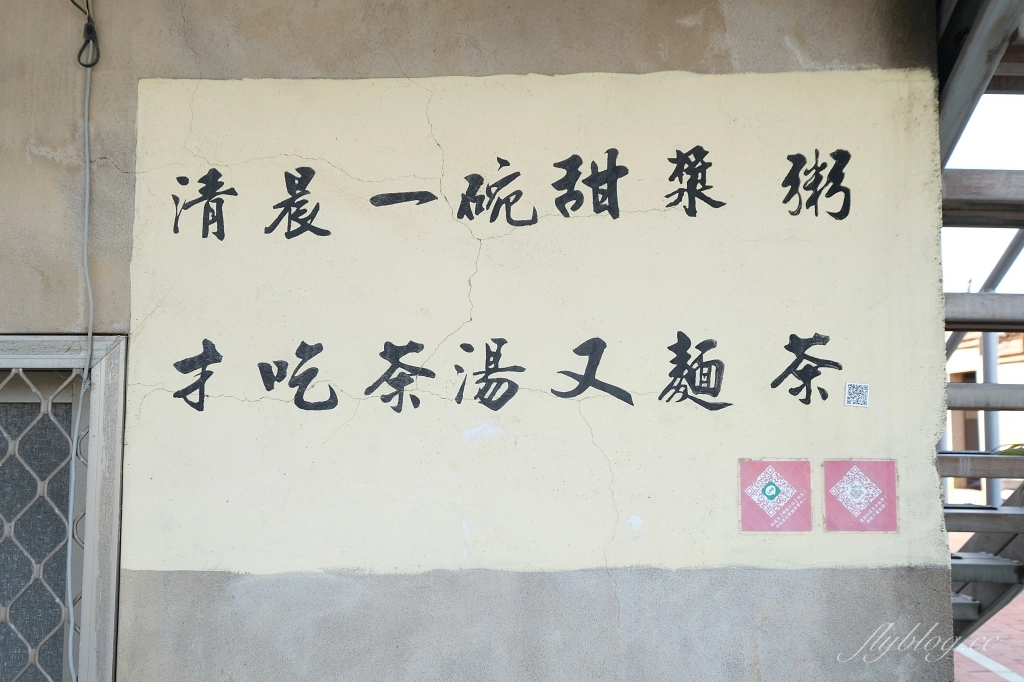 清晨一碗甜漿粥
才吃茶湯又麵茶
flyblog.cc